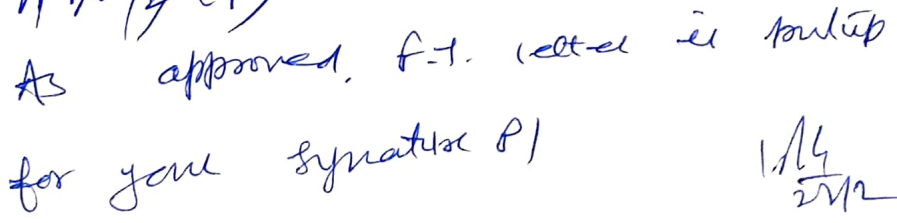 As approved. F.I. letter is putup
for your signature Pl
22/12